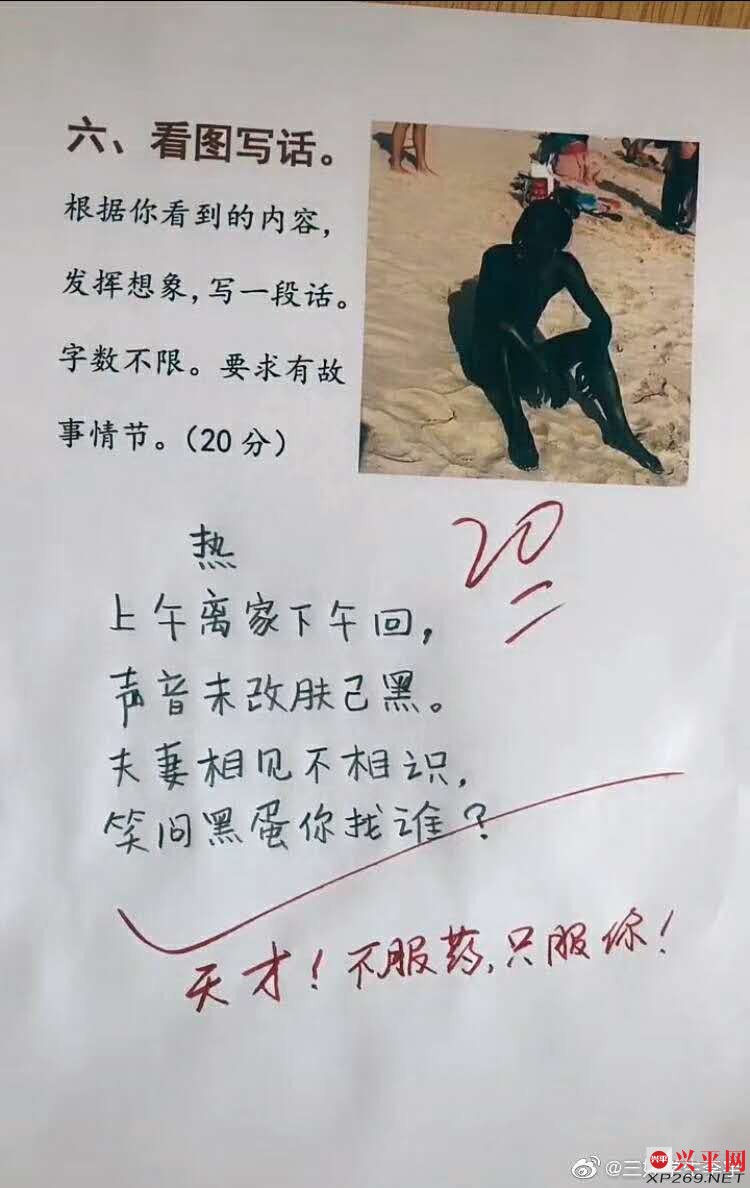 六、看图写话。
根据你看到的内容，
发挥想象，写一段话。
字数不限。要求有故
事情节。（20分）
热
20
上午离家下午回，
声音未改肤已黑。
夫妻相见不相识，
笑问黑蛋你找谁？
天才！不服药，只服你！
兴平 兴平网
XP269.NET